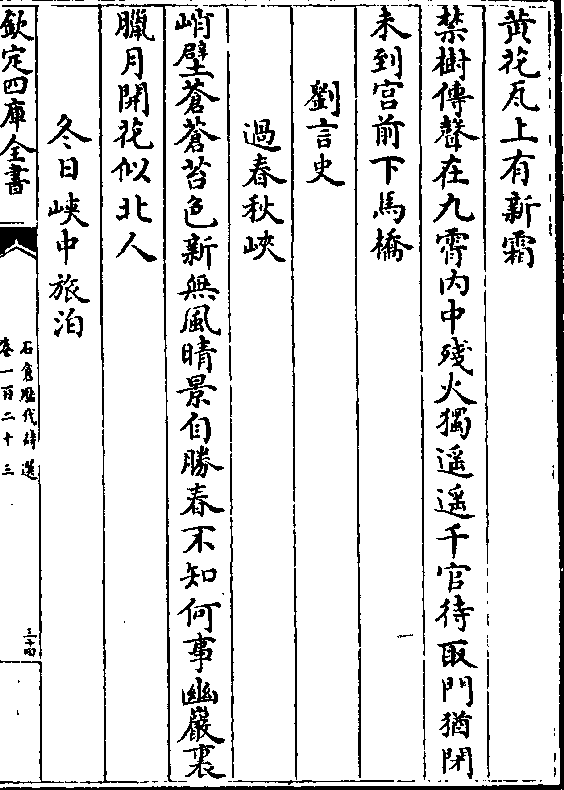 黄花瓦上有新霜
禁樹傳聲在九霄内中殘火獨遥遥千官待取門猶閉
未到宫前下馬橋
劉言史
過春秋峽
峭壁蒼蒼苔色新無風晴景自勝春不知何事幽巖裏
臘月開花似北人
冬日峽中旅泊
欽定四庫全書
石倉歷代詩選
卷一百二十三
三十四